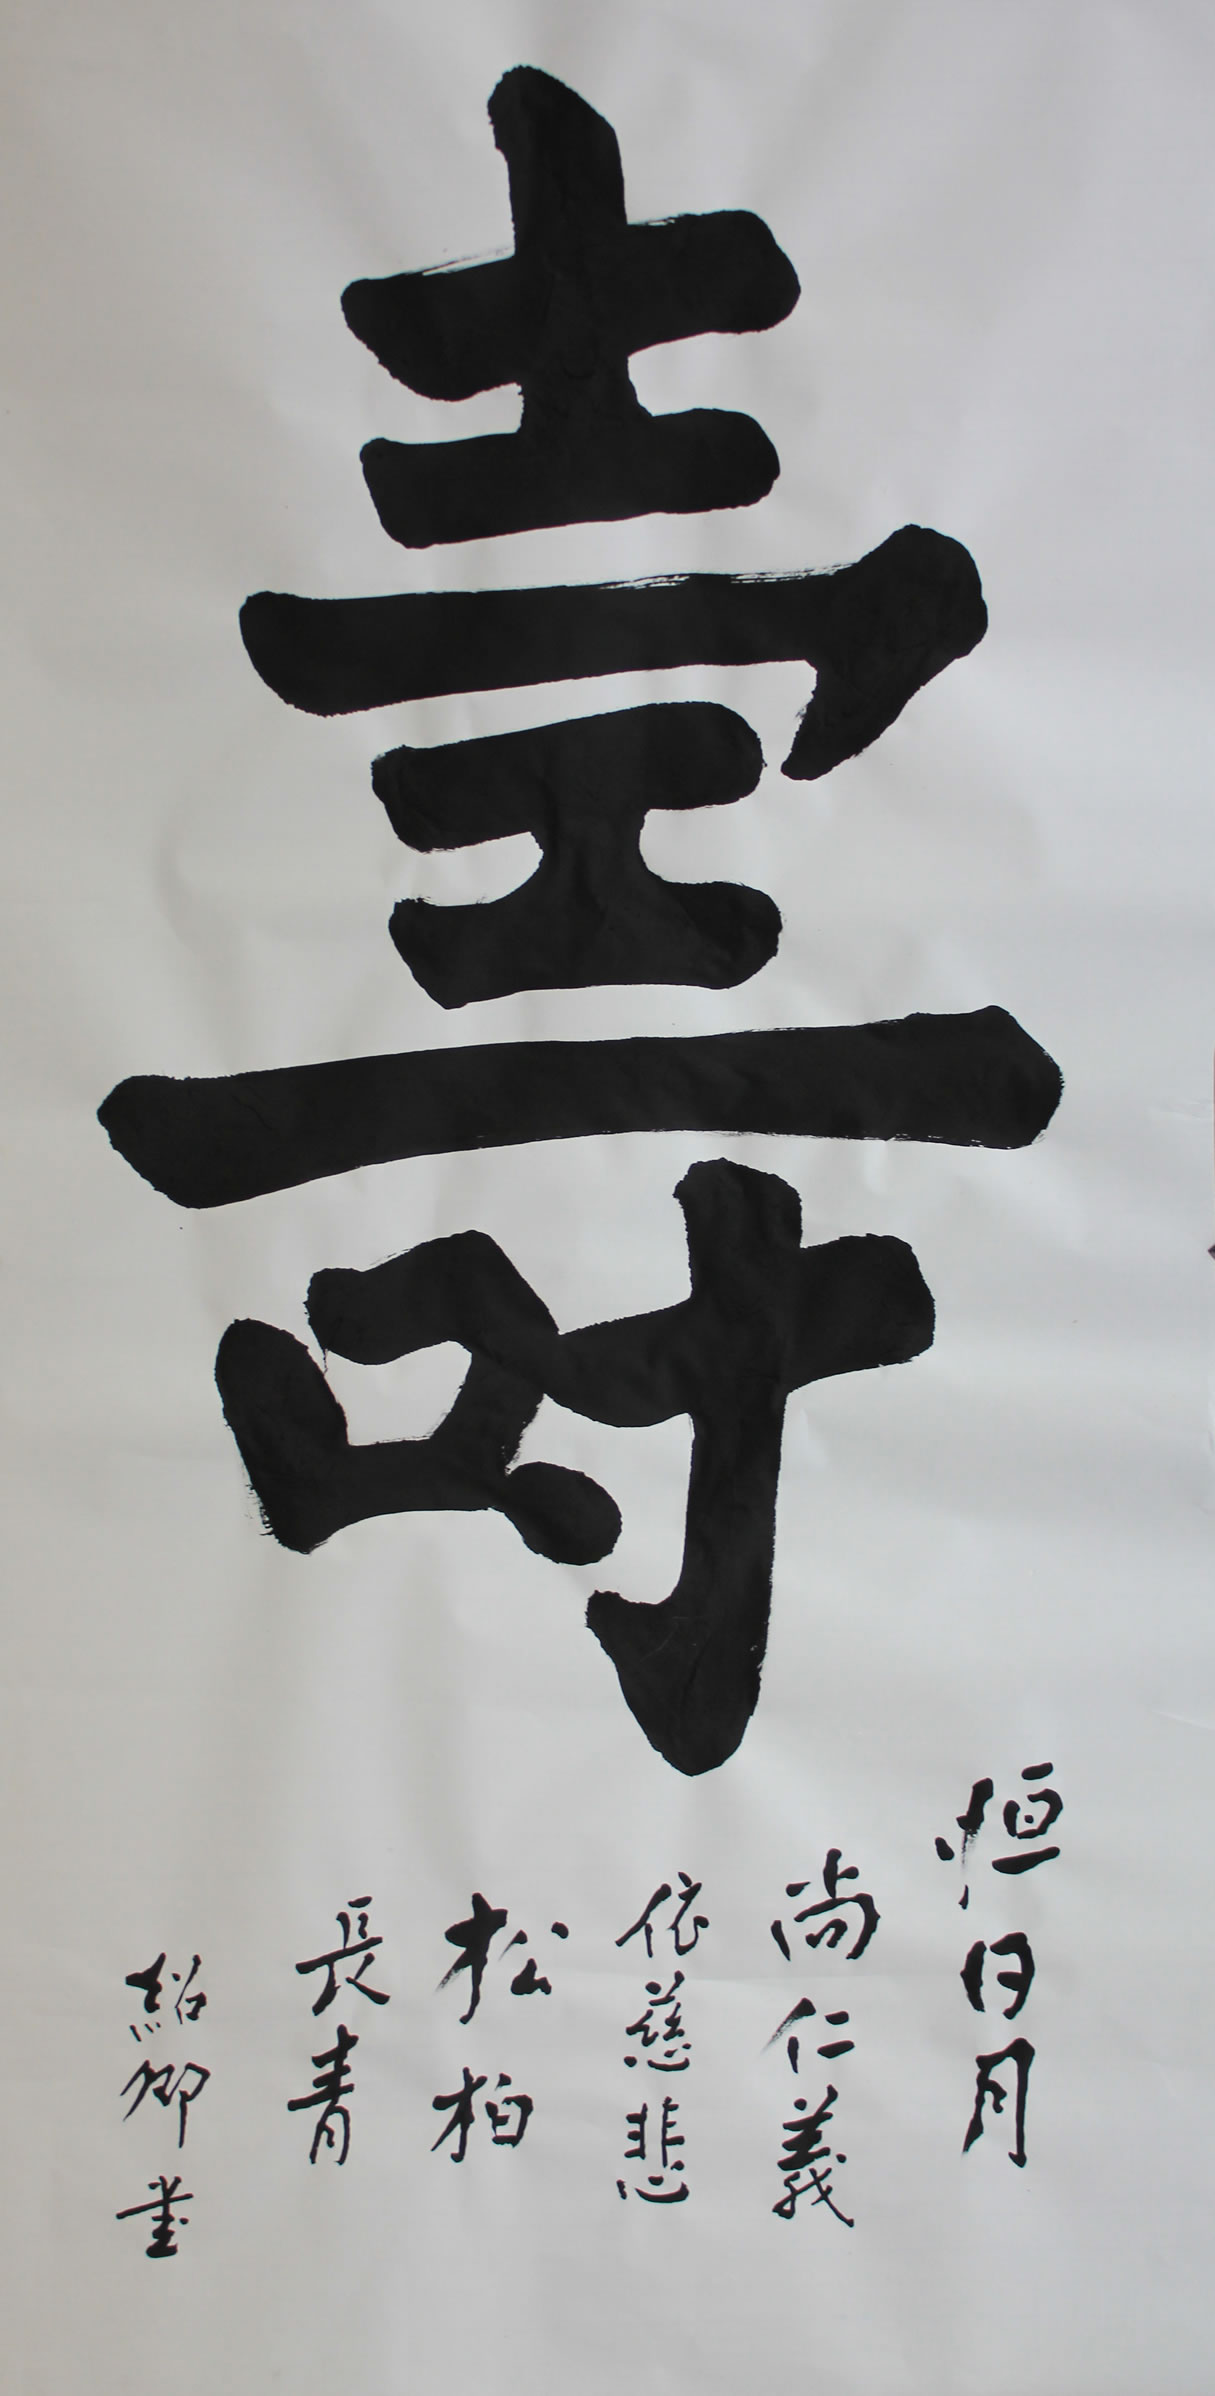 壽
恒日月
尚仁義
依慈悲
松柏
長青
紹卿書